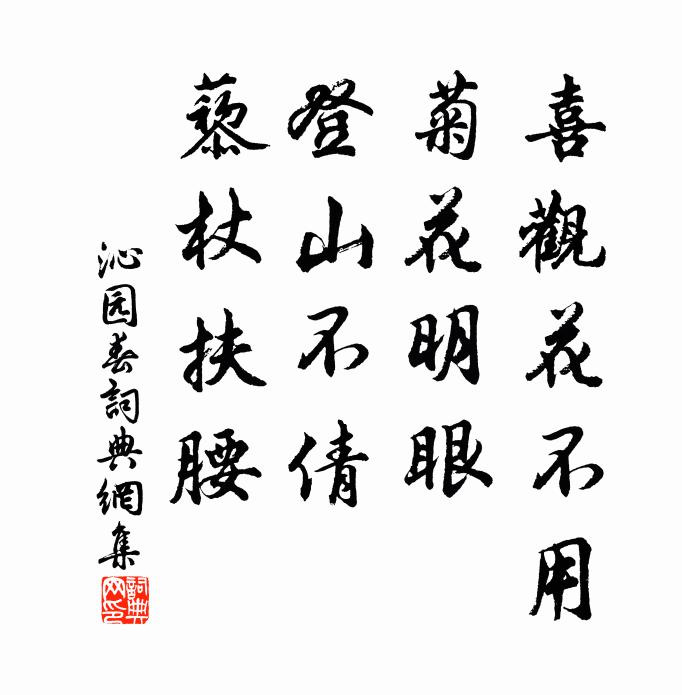 喜觀花不用
菊花明眼
登山不倩
藜杖扶腰
沁园春詞典網集
詞典网印